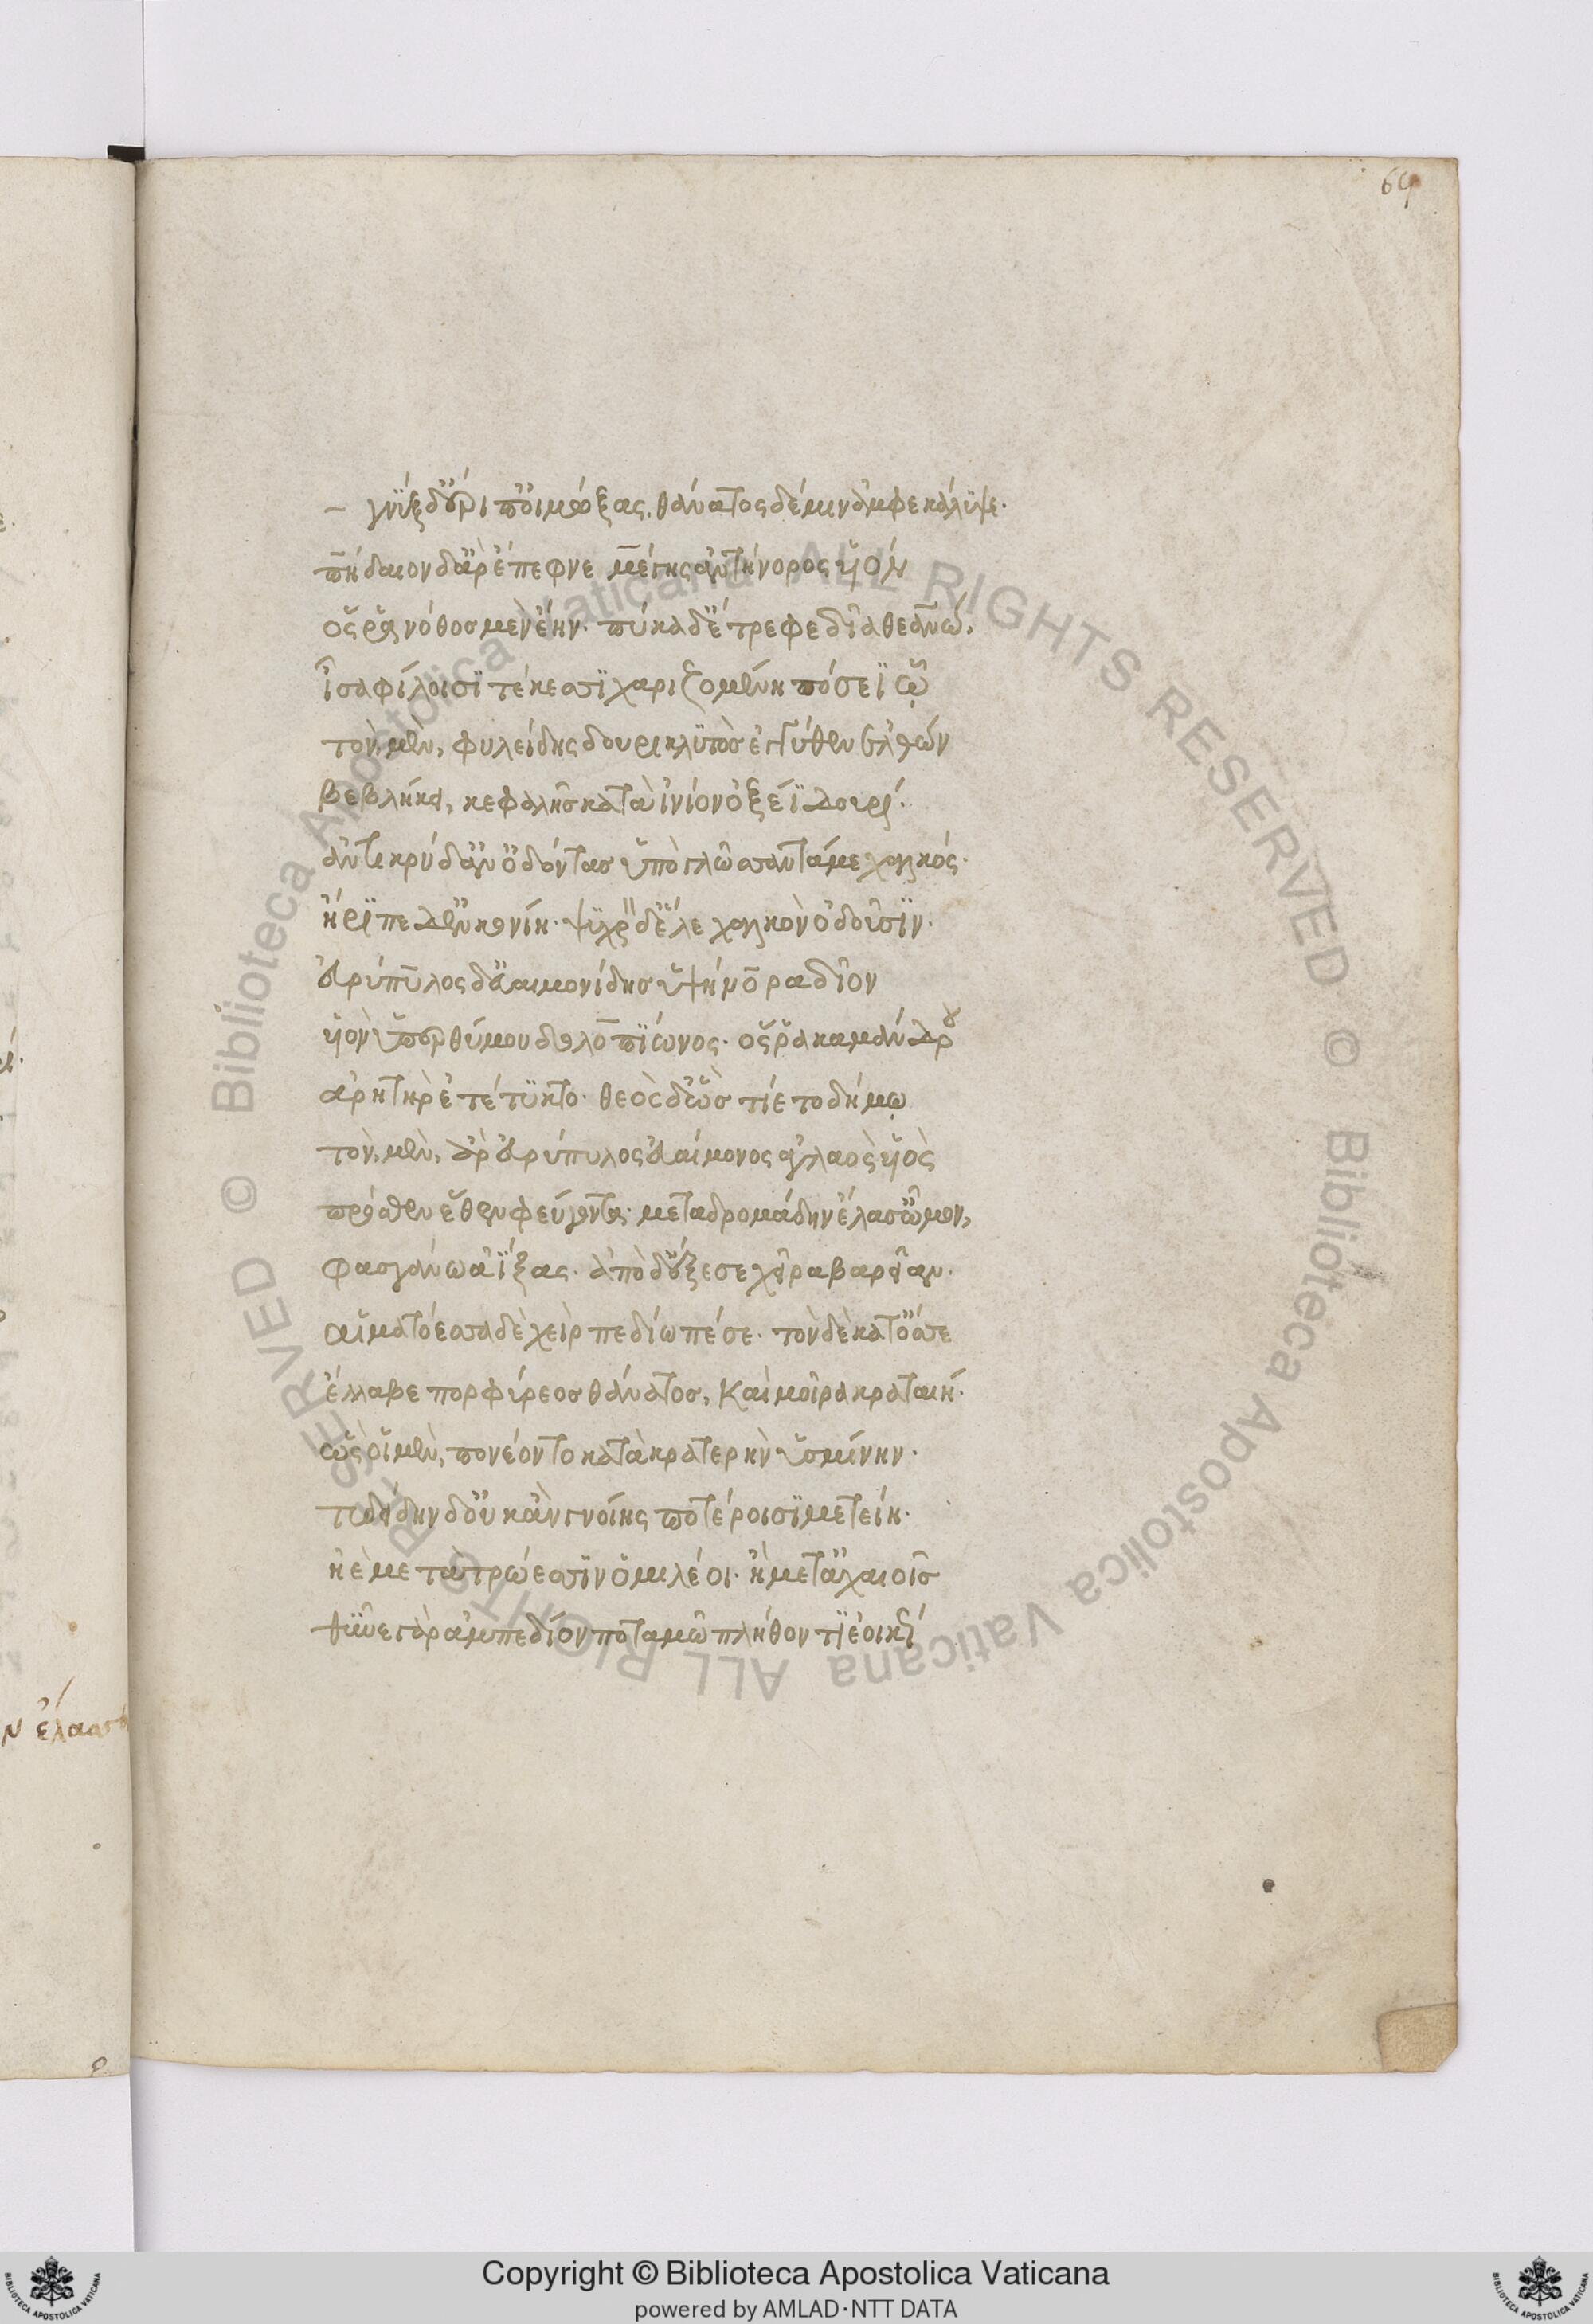 64
γνὺξ δ' ἔριπ' οἰμώξας, θάνατος δέ μιν ἀμφεκάλυψε.
πήδαιον δ' ἄρ' ἔπεφνε μέγης ἀντήνορος υἱόν
ὅς ῥα νόθος μὲν ἔην. πύκα δ' ἔτρεφε δῖα θεανώ,
ἶσα φίλοισι τέκεσσι χαριζομένη πόσεϊ ᾧ
τὸν μὲν, φυλείδης δουρικλυτὸς ἐγγύθεν ἐλθών
βεβλήκει, κεφαλῆς κατὰ ἰνίον ὀξέϊ δουρί.
ἀντικρὺ δ' ἀν' ὀδόντας ὑπὸ γλῶσσαν τάμε χαλκός.
ἤριπε δ' ἐν κονίη. ψυχρὸν δ' ἕλε χαλκὸν ὀδοῦσιν.
εὐρύπυλος δ' εὐαιμονίδης ὑψήνορα δῖον
υἱὸν ὑπερθύμου δολοπίωνος. ὅς ῥα σκαμάνδρου
ἀρητὴρ ἐτέτυκτο. θεὸς δ' ὣς τίετο δήμῳ
τὸν μὲν, ἄρ' εὐρύπυλος εὐαίμονος ἀγλαὸς υἱὸς
πρόσθεν ἕθεν φεύγοντα. μεταδρομάδην ἔλασ' ὦμον,
φασγάνω ἀΐξας. ἀπὸ δ' ἔξεσε χεῖρα βαρεῖαν.
αἱματόεσσα δὲ χεὶρ πεδίω πέσε. τὸν δὲ κατ' ὄσσε
ἔλλαβε πορφύρεος θάνατος, καὶ μοῖρα κραταιή.
ὣς οἱ μὲν, πονέοντο κατὰ κρατερὴν ὑσμίνην.
τυδείδην δ' οὐκ ἂν γνοίης ποτέροισι μετείη.
ἠὲ μετὰ τρώεσσιν ὁμιλέοι. ἢ μετ' ἀχαιοῖς
θῦνε γὰρ ἀμπεδίον ποταμῶ πλήθοντι ἐοικὼς
Copyright © Biblioteca Apostolica Vaticana
powered by AMLAD·NTT DATA
Biblioteca Apostolica Vaticana ALL RIGHTS RESERVED © Biblioteca Apostolica Vaticana ALL RIGHTS RESERVED ©